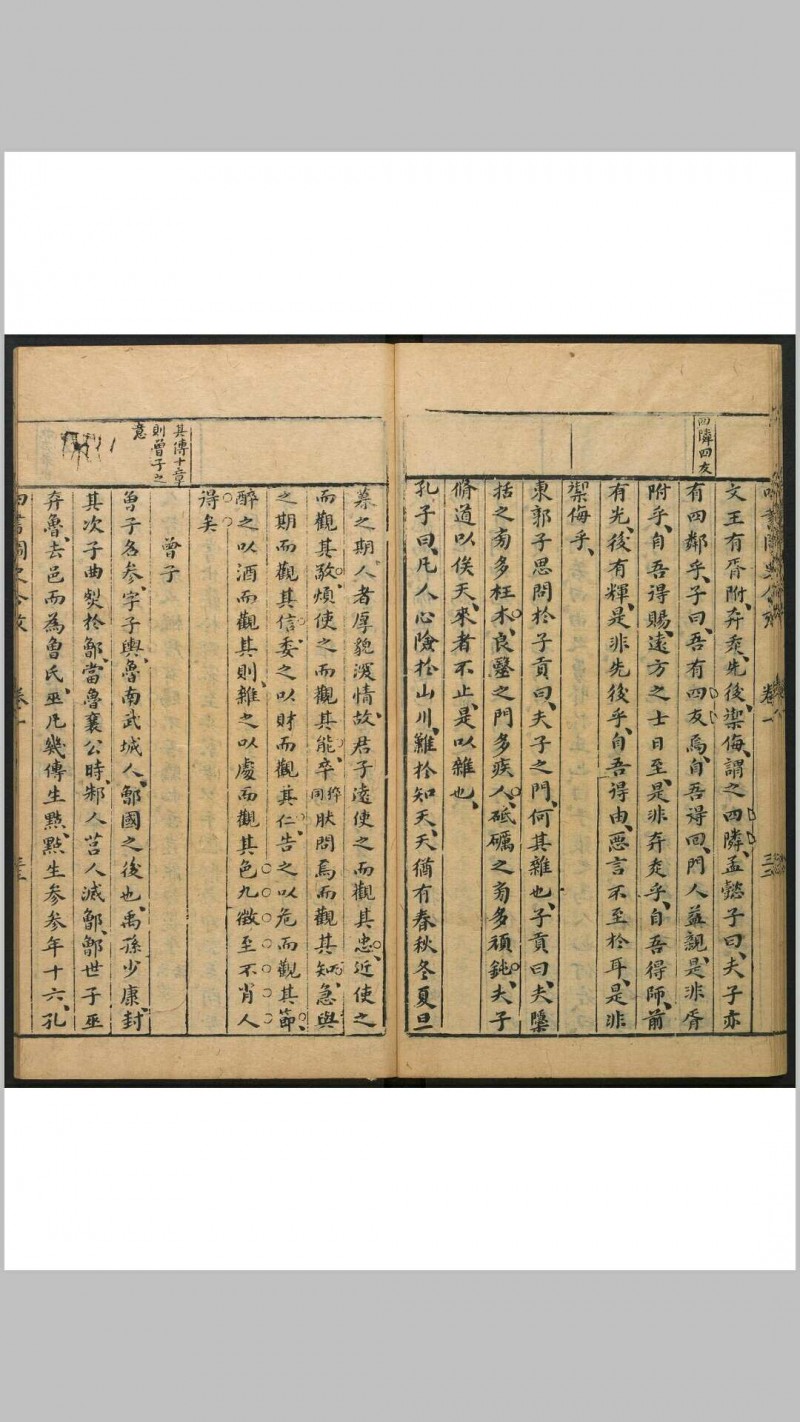 四隣四友
文王有胥附、奔奏、先後、禦侮、謂之四隣、孟懿子曰、夫子亦
有四鄰乎、子曰、吾有四友焉、自吾得回、門人益親、是非胥
附乎、自吾得賜、遠方之士日至、是非奔奏乎、自吾得師、前
有光、後有輝、是非先後乎、自吾得由、惡言不至於耳、是非
禦侮乎、
東郭子思問於子貢曰、夫子之門、何其雜也、子貢曰、夫檃
括之旁多枉木、良醫之門多疾人、砥礪之旁多頑鈍、夫子
脩道以俟天、來者不止、是以雜也、
孔子曰、凡人心險於山川、難於知天、天猶有春秋冬夏旦
暮之期、人者厚貌深情、故君子遠使之而觀其忠、近使之
而觀其敬、煩使之而觀其能、卒猝同然問焉而觀其知、急與
之期而觀其信、委之以財而觀其仁、告之以危而觀其節、
醉之以酒而觀其則、雜之以處而觀其色、九徵至不肖人
得矣
曾子
其傳十章
則曾子之
意
曾子名參、字子輿、魯南武城人、鄫國之後也、禹孫少康、封
其次子曲烈於鄫、當魯襄公時、邾人莒人滅鄫、鄫世子巫
奔魯、去邑而為曾氏、巫凡幾傳生點、點生參參年十六、孔
四書圖史合攷 卷一